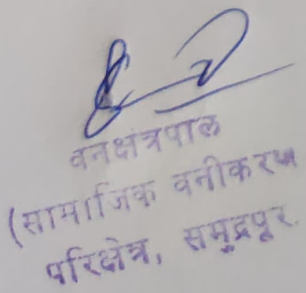 वनक्षेत्रपाल
(सामाजिक वनीकरण
परिक्षेत्र, समुद्रपूर.